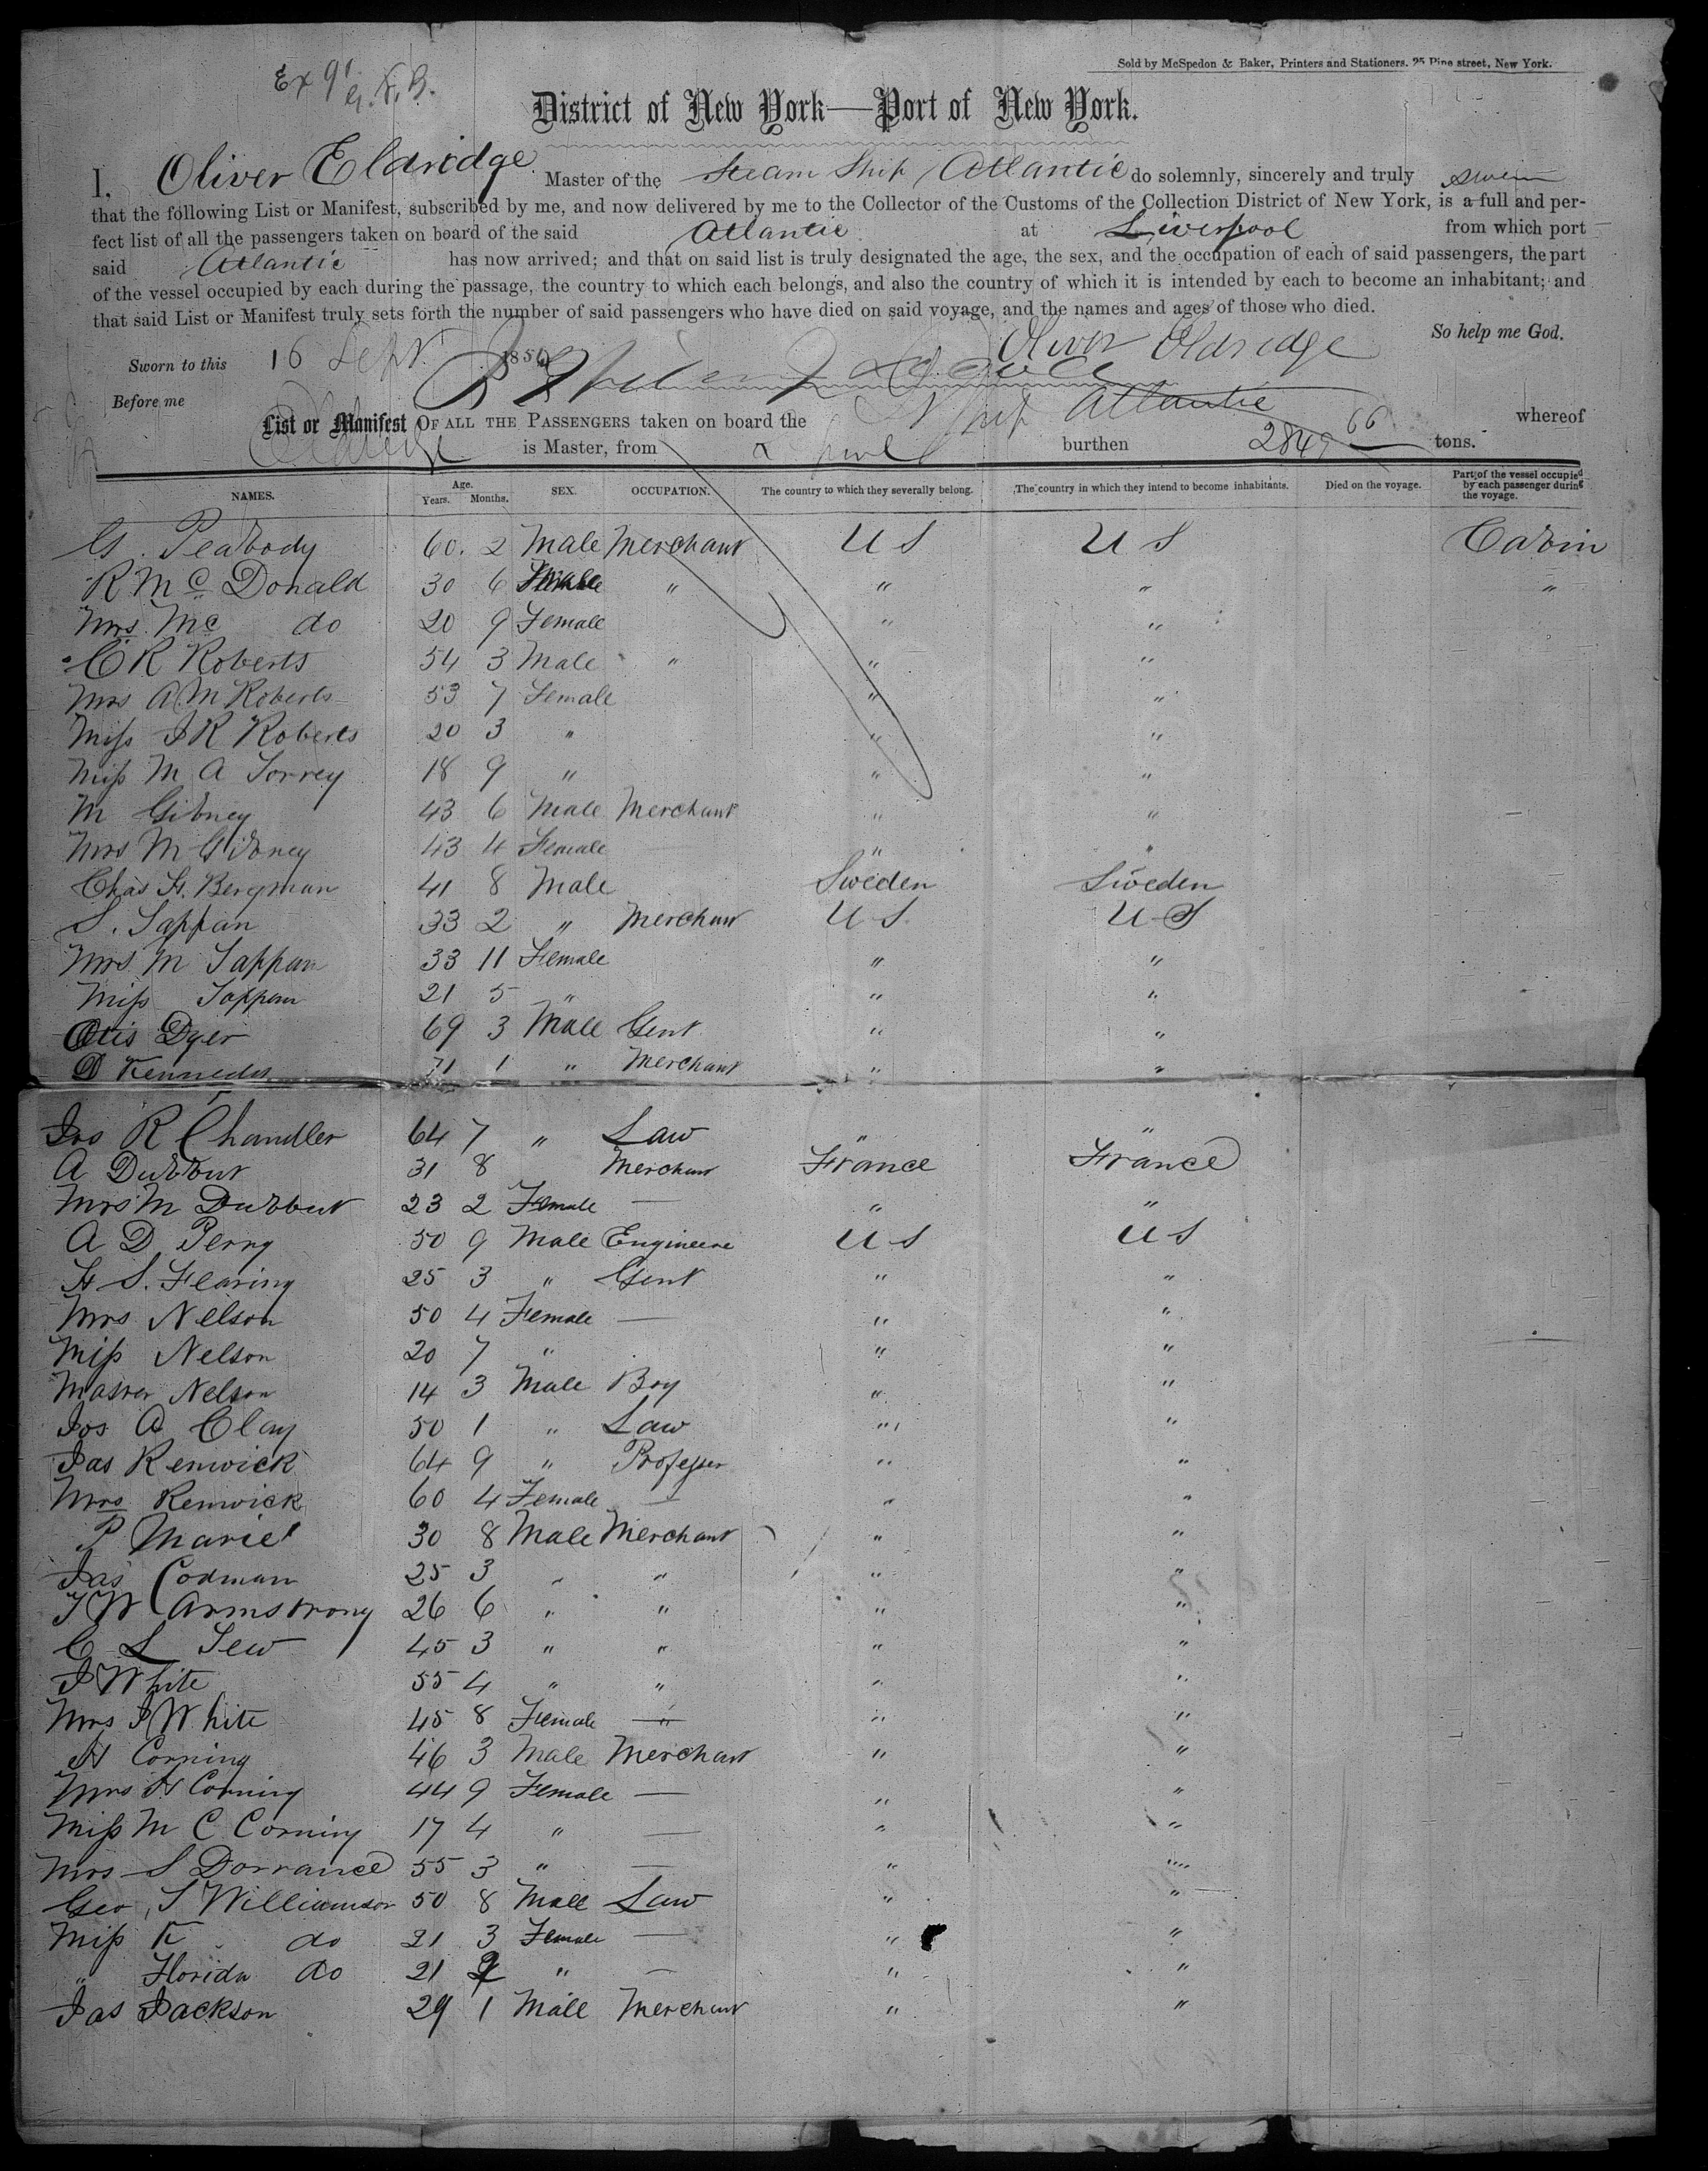 Sold by McSpedon & Baker, Printers and Stationers. 25 Pine street, New York.
District of New York—Port of New York.
I. Oliver Eldridge Master of the Steam Ship Atlantic do solemnly, sincerely and truly swear
that the following List or Manifest, subscribed by me, and now delivered by me to the Collector of the Customs of the Collection District of New York, is a full and per-
fect list of all the passengers taken on board of the said Atlantic at Liverpool from which port
said Atlantic has now arrived; and that on said list is truly designated the age, the sex, and the occupation of each of said passengers, the part
of the vessel occupied by each during the passage, the country to which each belongs, and also the country of which it is intended by each to become an inhabitant; and
that said List or Manifest truly sets forth the number of said passengers who have died on said voyage, and the names and ages of those who died.
So help me God.
Oliver Eldridge
Sworn to this 16 Sept 1856
Before me
List or Manifest OF ALL THE PASSENGERS taken on board the Ship Atlantic whereof
Eldridge is Master, from burthen 2849 66 tons.
NAMES. Age. Years. Months. SEX. OCCUPATION. The country to which they severally belong. The country in which they intend to become inhabitants. Died on the voyage. Part of the vessel occupied by each passenger during the voyage.
G. Peabody 60. 2 Male Merchant U S U S Cabin
R Mc Donald 30 6 Male " " " "
Mrs Mc do 20 9 Female " "
C R Roberts 54 3 Male " " "
Mrs A M Roberts 53 7 Female " "
Miss J R Roberts 20 3 " " "
Miss M A Torrey 18 9 " " "
M Gibney 43 6 Male Merchant " "
Mrs M Gibney 43 4 Female " "
Chas H. Bergman 41 8 Male Sweden Sweden
S. Tappan 33 2 " Merchant U S. U S
Mrs M Tappan 33 11 Female " "
Miss Tappan 21 5 " " "
Otis Dyer 69 3 Male Gent " "
D Kennedy 71 1 " Merchant " "
Jos R Chandler 64 7 " Law " "
A Dubbut 31 8 Merchant France France
Mrs M Dubbut 23 2 Female — " "
A D Perry 50 9 Male Engineere U S U S
H S. Fearing 25 3 " Gent " "
Mrs Nelson 50 4 Female — " "
Miss Nelson 20 7 " " "
Master Nelson 14 3 Male Boy " "
Jos A Clay 50 1 " Law " "
Jas Renwick 64 9 " Professer " "
Mrs Renwick 60 4 Female — " "
P Marie 30 8 Male Merchant " "
Jas Codman 25 3 " " " "
T W Armstrong 26 6 " " " "
C L Tew 45 3 " " " "
J White 55 4 " " " "
Mrs J White 45 8 Female — " "
H Corning 46 3 Male Merchant " "
Mrs H Corning 44 9 Female — " "
Miss M C Corning 17 4 " — " "
Mrs S Dorrance 55 3 " — " "
Geo. T Williamson 50 8 Male Law " "
Miss K do 21 3 Female — " "
" Florida do 21 " — " "
Jas Jackson 29 1 Male Merchant " "